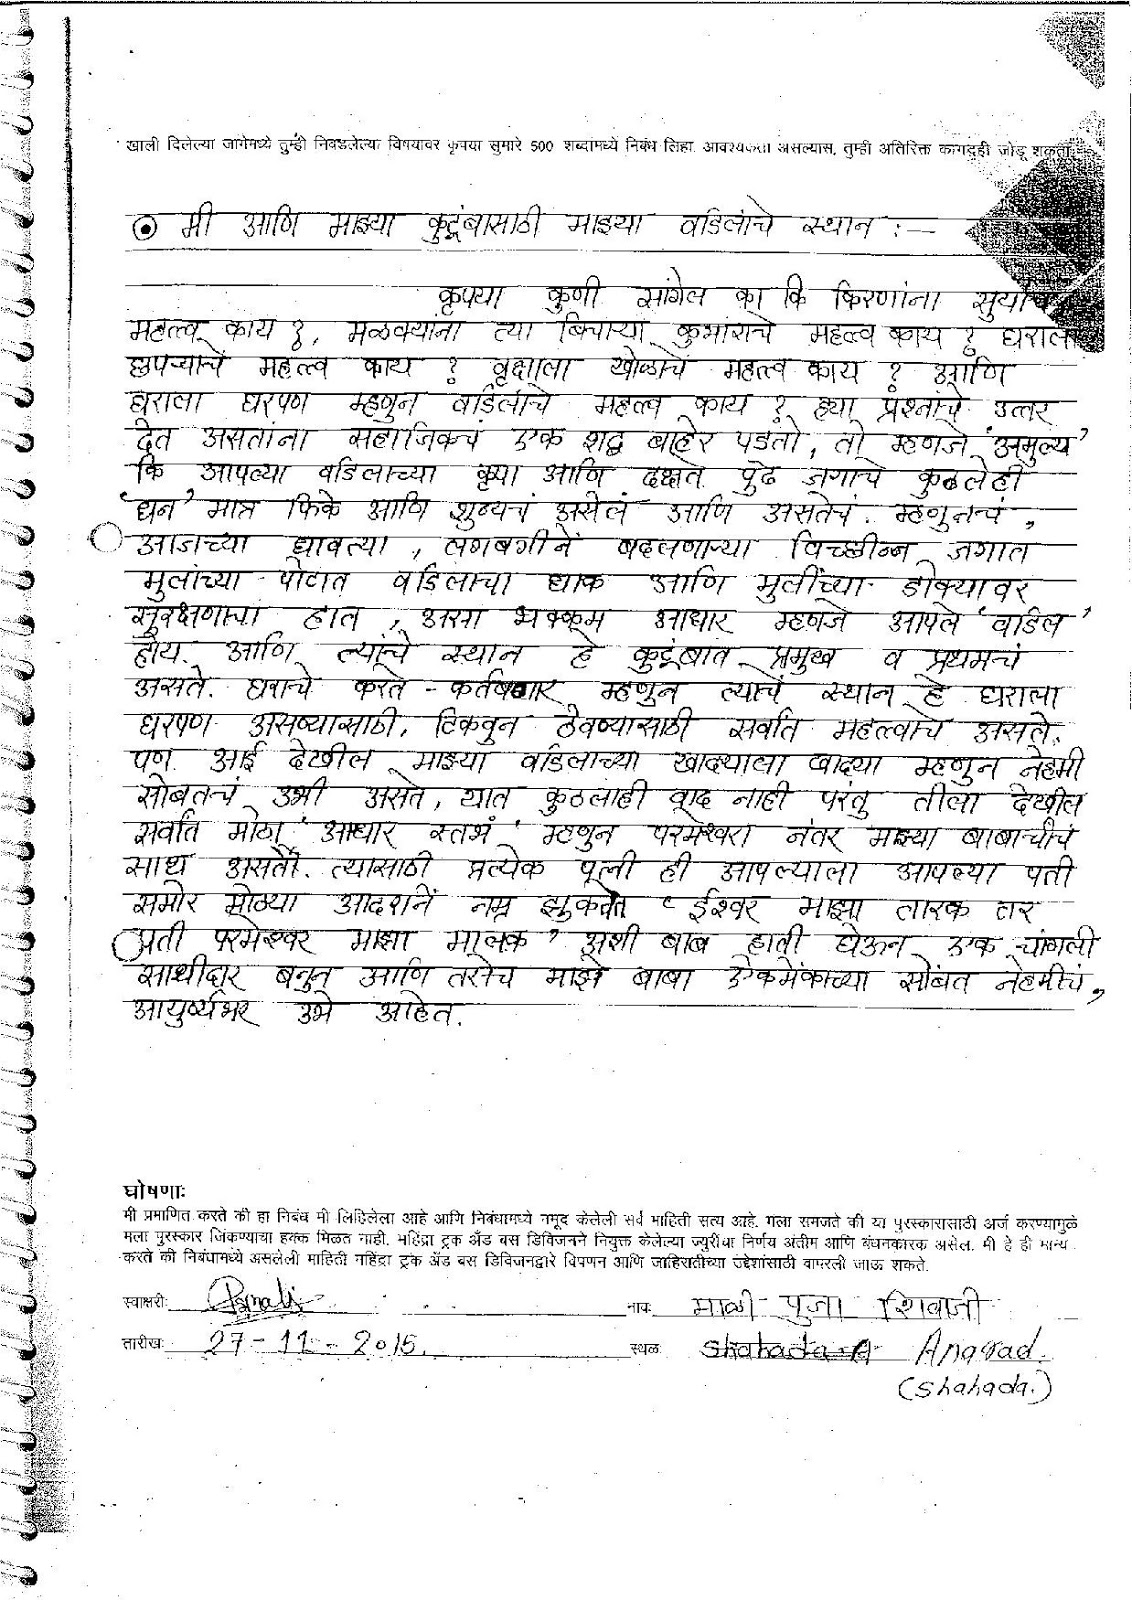 खाली दिलेल्या जागेमध्ये तुम्ही निवडलेल्या विषयावर कृपया सुमारे 500 शब्दांमध्ये निबंध लिहा. आवश्यकता असल्यास, तुम्ही अतिरिक्त कागदही जोडू शकता.
मी आणि माझ्या कुटूंबासाठी माझ्या वडिलांचे स्थान :—
कृपया कुणी सांगेल का कि किरणांना सुर्याचं
महत्त्व काय ?, मळक्यांना त्या बिचाऱ्या कुभांराचे महत्त्व काय ? घराला
छपऱ्याचे महत्त्व काय ? वृक्षाला खोळाचे महत्त्व काय ? आणि
घराला घरपण म्हणुन वडिलांचे महत्त्व काय ? ह्या प्रश्नांचे उत्तर
देत असतांना सहाजिकचं एक शद्व बाहेर पडतो, तो म्हणजे 'अमुल्य'
कि आपल्या वडिलाच्या कृपा आणि दक्षते पुढे जगाचे कुठलेही
'धन' मात्र फिके आणि शुन्यचं असेलं आणि असतेचं. म्हणुनचं,
आजच्या धावत्या, लगबगीनें बदलणाऱ्या विच्छीन्न जगात
मुलांच्या पोटात वडिलाचा धाक आणि मुलींच्या डोक्यावर
सुरक्षणाचा हात, असा भक्कम आधार म्हणजे आपले 'वडिल'
होय. आणि त्यांचे स्थान हे कुटूंबात प्रमुख व प्रथमचं
असते. घराचे करते - म्हणुन त्याचें स्थान हे घराला
घरपण असण्यासाठी, टिकवुन ठेवण्यासाठी सर्वात महत्त्वाचे असते.
पण आई देखील माझ्या वडिलाच्या खाद्याला खाद्या म्हणुन नेहमी
सोबतचं उभी असते, यात कुठलाही वाद नाही परंतु तीला देखील
सर्वात मोठा 'आधार स्तभं' म्हणुन परमेश्वरा नंतर माझ्या बाबाचीचं
साथ असते. त्यासाठी प्रत्येक पत्नी ही आपल्याला आपल्या पती
समोर मोठ्या आदरानें नम्र झुकवते 'ईश्वर माझा तारक तर
पती परमेश्वर माझा मालक' अशी बाब हाती घेऊन एक चांगली
साथीदार बनुन आणि तसेच माझे बाबा ऐकमेंकाच्या सोबत नेहमीचं,
आयुर्ष्यभर उभे आहेत.
घोषणाः
मी प्रमाणित करते की हा निबंध मी लिहिलेला आहे आणि निबंधामध्ये नमूद केलेली सर्व माहिती सत्य आहे. मला समजते की या पुरस्कारासाठी अर्ज करण्यामुळे
मला पुरस्कार जिंकण्याचा हक्क मिळत नाही. महिंद्रा ट्रक अँड बस डिविजनने नियुक्त केलेल्या ज्युरींचा निर्णय अंतीम आणि बंधनकारक असेल. मी हे ही मान्य
करते की निबंधामध्ये असलेली माहिती महिंद्रा ट्रक अँड बस डिविजनद्वारे विपणन आणि जाहिरातीच्या उद्देशांसाठी वापरली जाऊ शकते.
स्वाक्षरीः Psmali नावः माळी पुजा शिवाजी
तारीखः 27-11-2015. स्थळः Anarad.
(Shahada.)